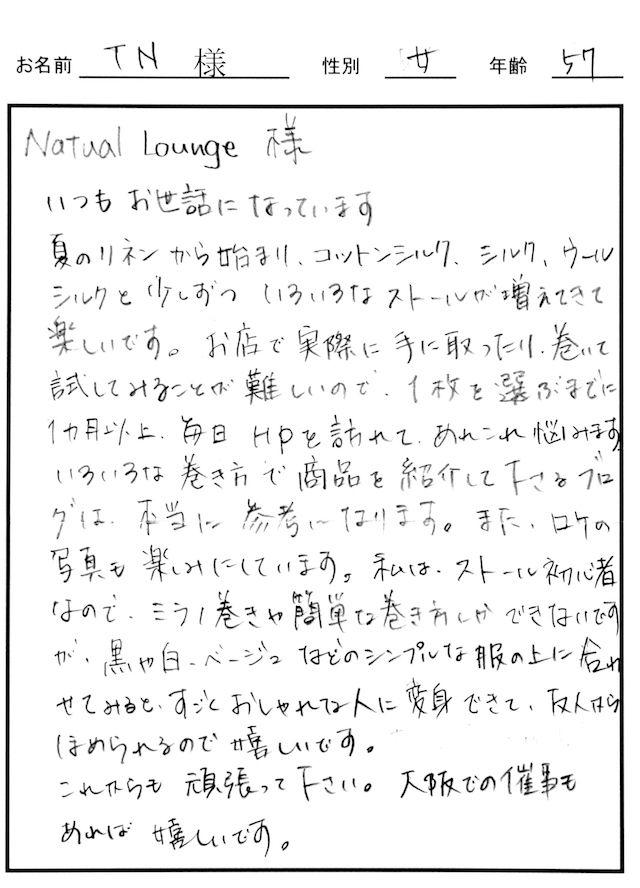 お名前 TN 様 性別 女 年齢 57
Natual Lounge 様
いつも お世話に なっています
夏のリネン から始まり、コットンシルク、シルク、ウール
シルクと 少しずつ いろいろな ストールが 増えてきて
楽しいです。 お店で 実際に 手に取ったり、巻いて
試してみることが 難しいので、1枚を 選ぶまでに
1カ月以上、毎日 HPを訪れて、あれこれ 悩みます。
いろいろな 巻き方で 商品を 紹介して 下さる ブロ
グは、本当に 参考になります。 また、ロケの
写真も 楽しみにしています。 私は、ストール初心者
なので、ミラノ巻きや簡単な巻き方しか できないです
が、黒や白、ベージュ などのシンプルな 服の上に合わ
せてみると、すごく おしゃれな人に 変身できて、友人から
ほめられるので 嬉しいです。
これからも 頑張って 下さい。 大阪での催事も
あれば 嬉しいです。